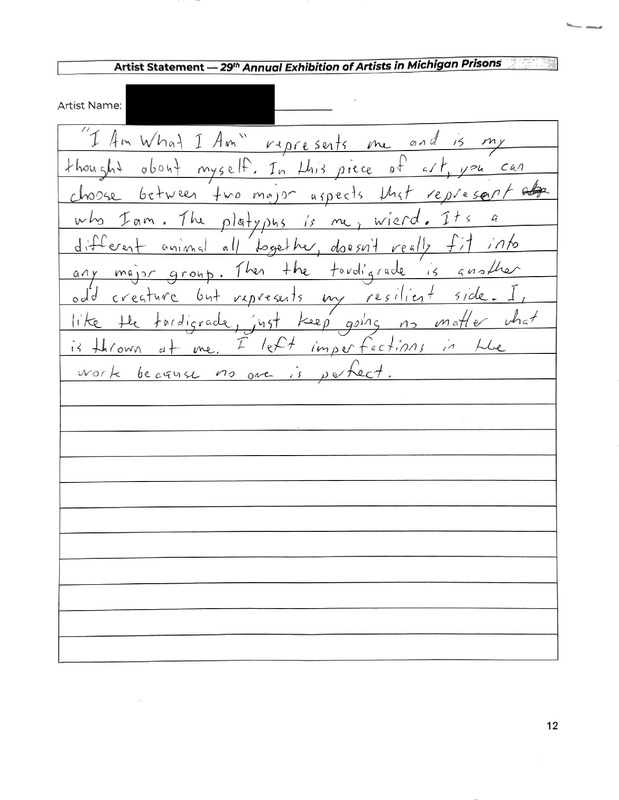 Artist Statement — 29th Annual Exhibition of Artists in Michigan Prisons
Artist Name:
"I Am What I Am" represents me and is my
thought about myself. In this piece of art, you can
choose between two major aspects that represent
who I am. The platypus is me, wierd. Its a
different animal all together, doesn't really fit into
any major group. Then the tardigrade is another
odd creature but represents my resilient side. I,
like the tardigrade, just keep going no matter what
is thrown at me. I left imperfections in the
work because no one is perfect.
12